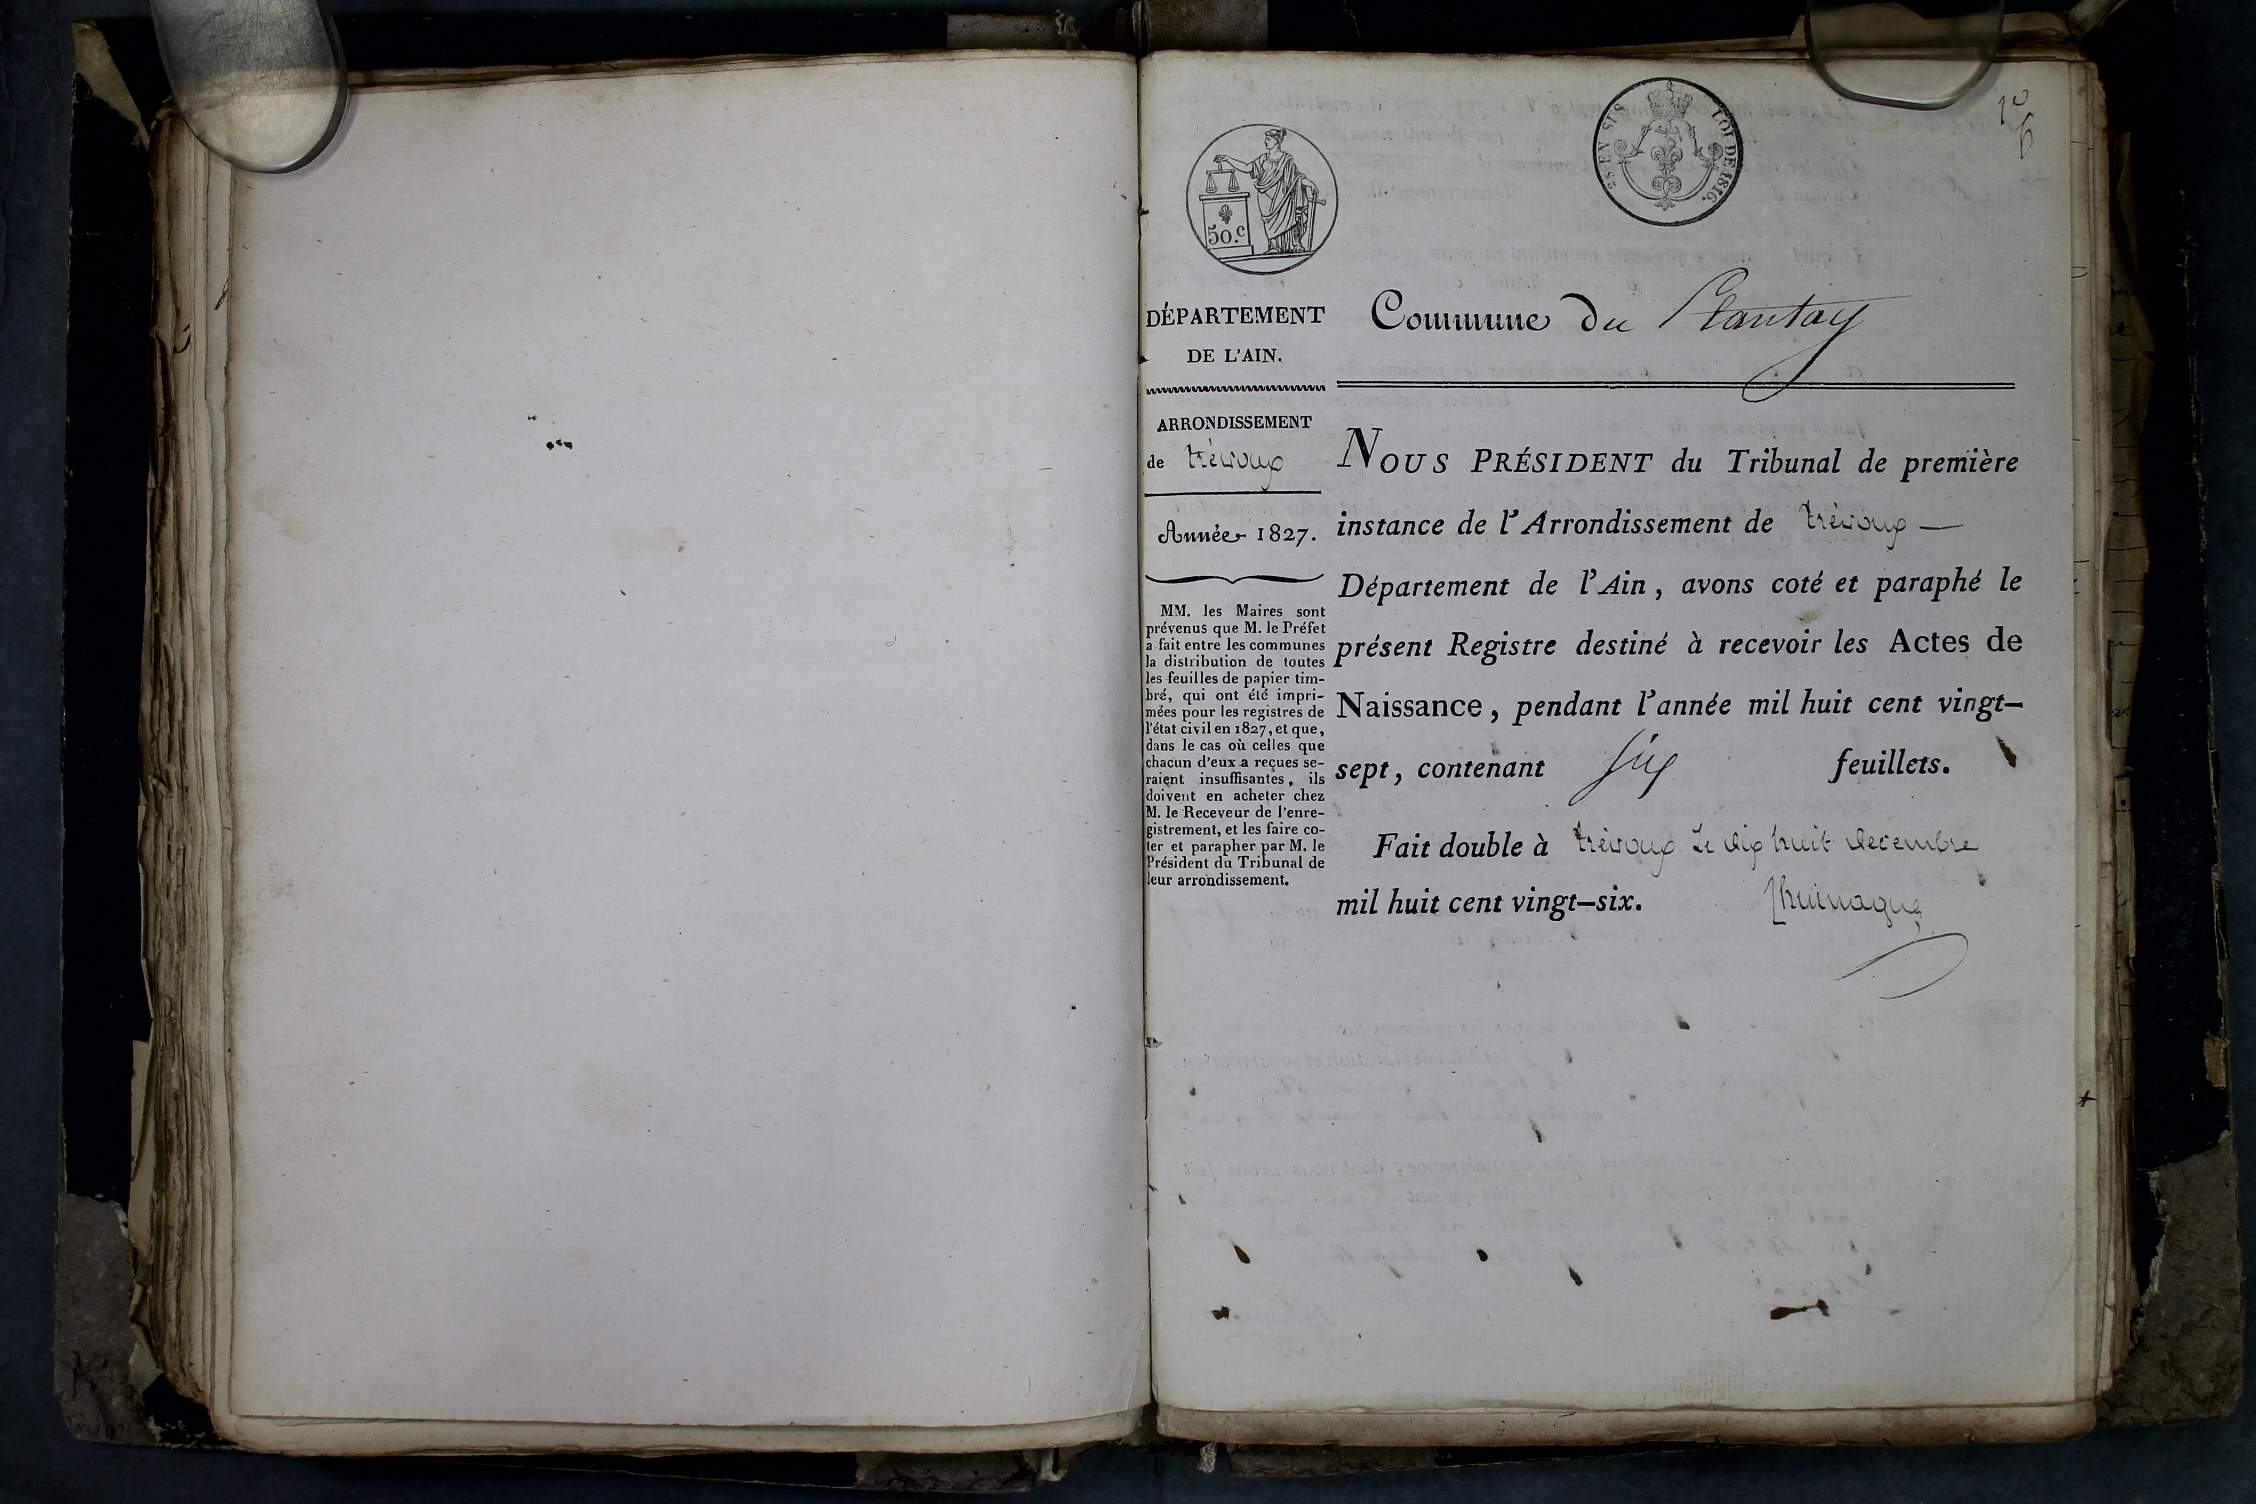 50.c
2s. EN SUS LOI DE 1816.
DÉPARTEMENT
DE L'AIN.
Commune du Plantay
ARRONDISSEMENT
de trévoux
Année 1827.
MM. les Maires sont
prévenus que M. le Préfet
a fait entre les communes
la distribution de toutes
les feuilles de papier tim-
bré, qui ont été impri-
mées pour les registres de
l'état civil en 1827, et que,
dans le cas où celles que
chacun d'eux a reçues se-
raient insuffisantes, ils
doivent en acheter chez
M. le Receveur de l'enre-
gistrement, et les faire co-
ter et parapher par M. le
Président du Tribunal de
leur arrondissement.
NOUS PRÉSIDENT du Tribunal de première
instance de l'Arrondissement de trévoux —
Département de l'Ain, avons coté et paraphé le
présent Registre destiné à recevoir les Actes de
Naissance, pendant l'année mil huit cent vingt-
sept, contenant six feuillets.
Fait double à trévoux le dix huit decembre
mil huit cent vingt-six.